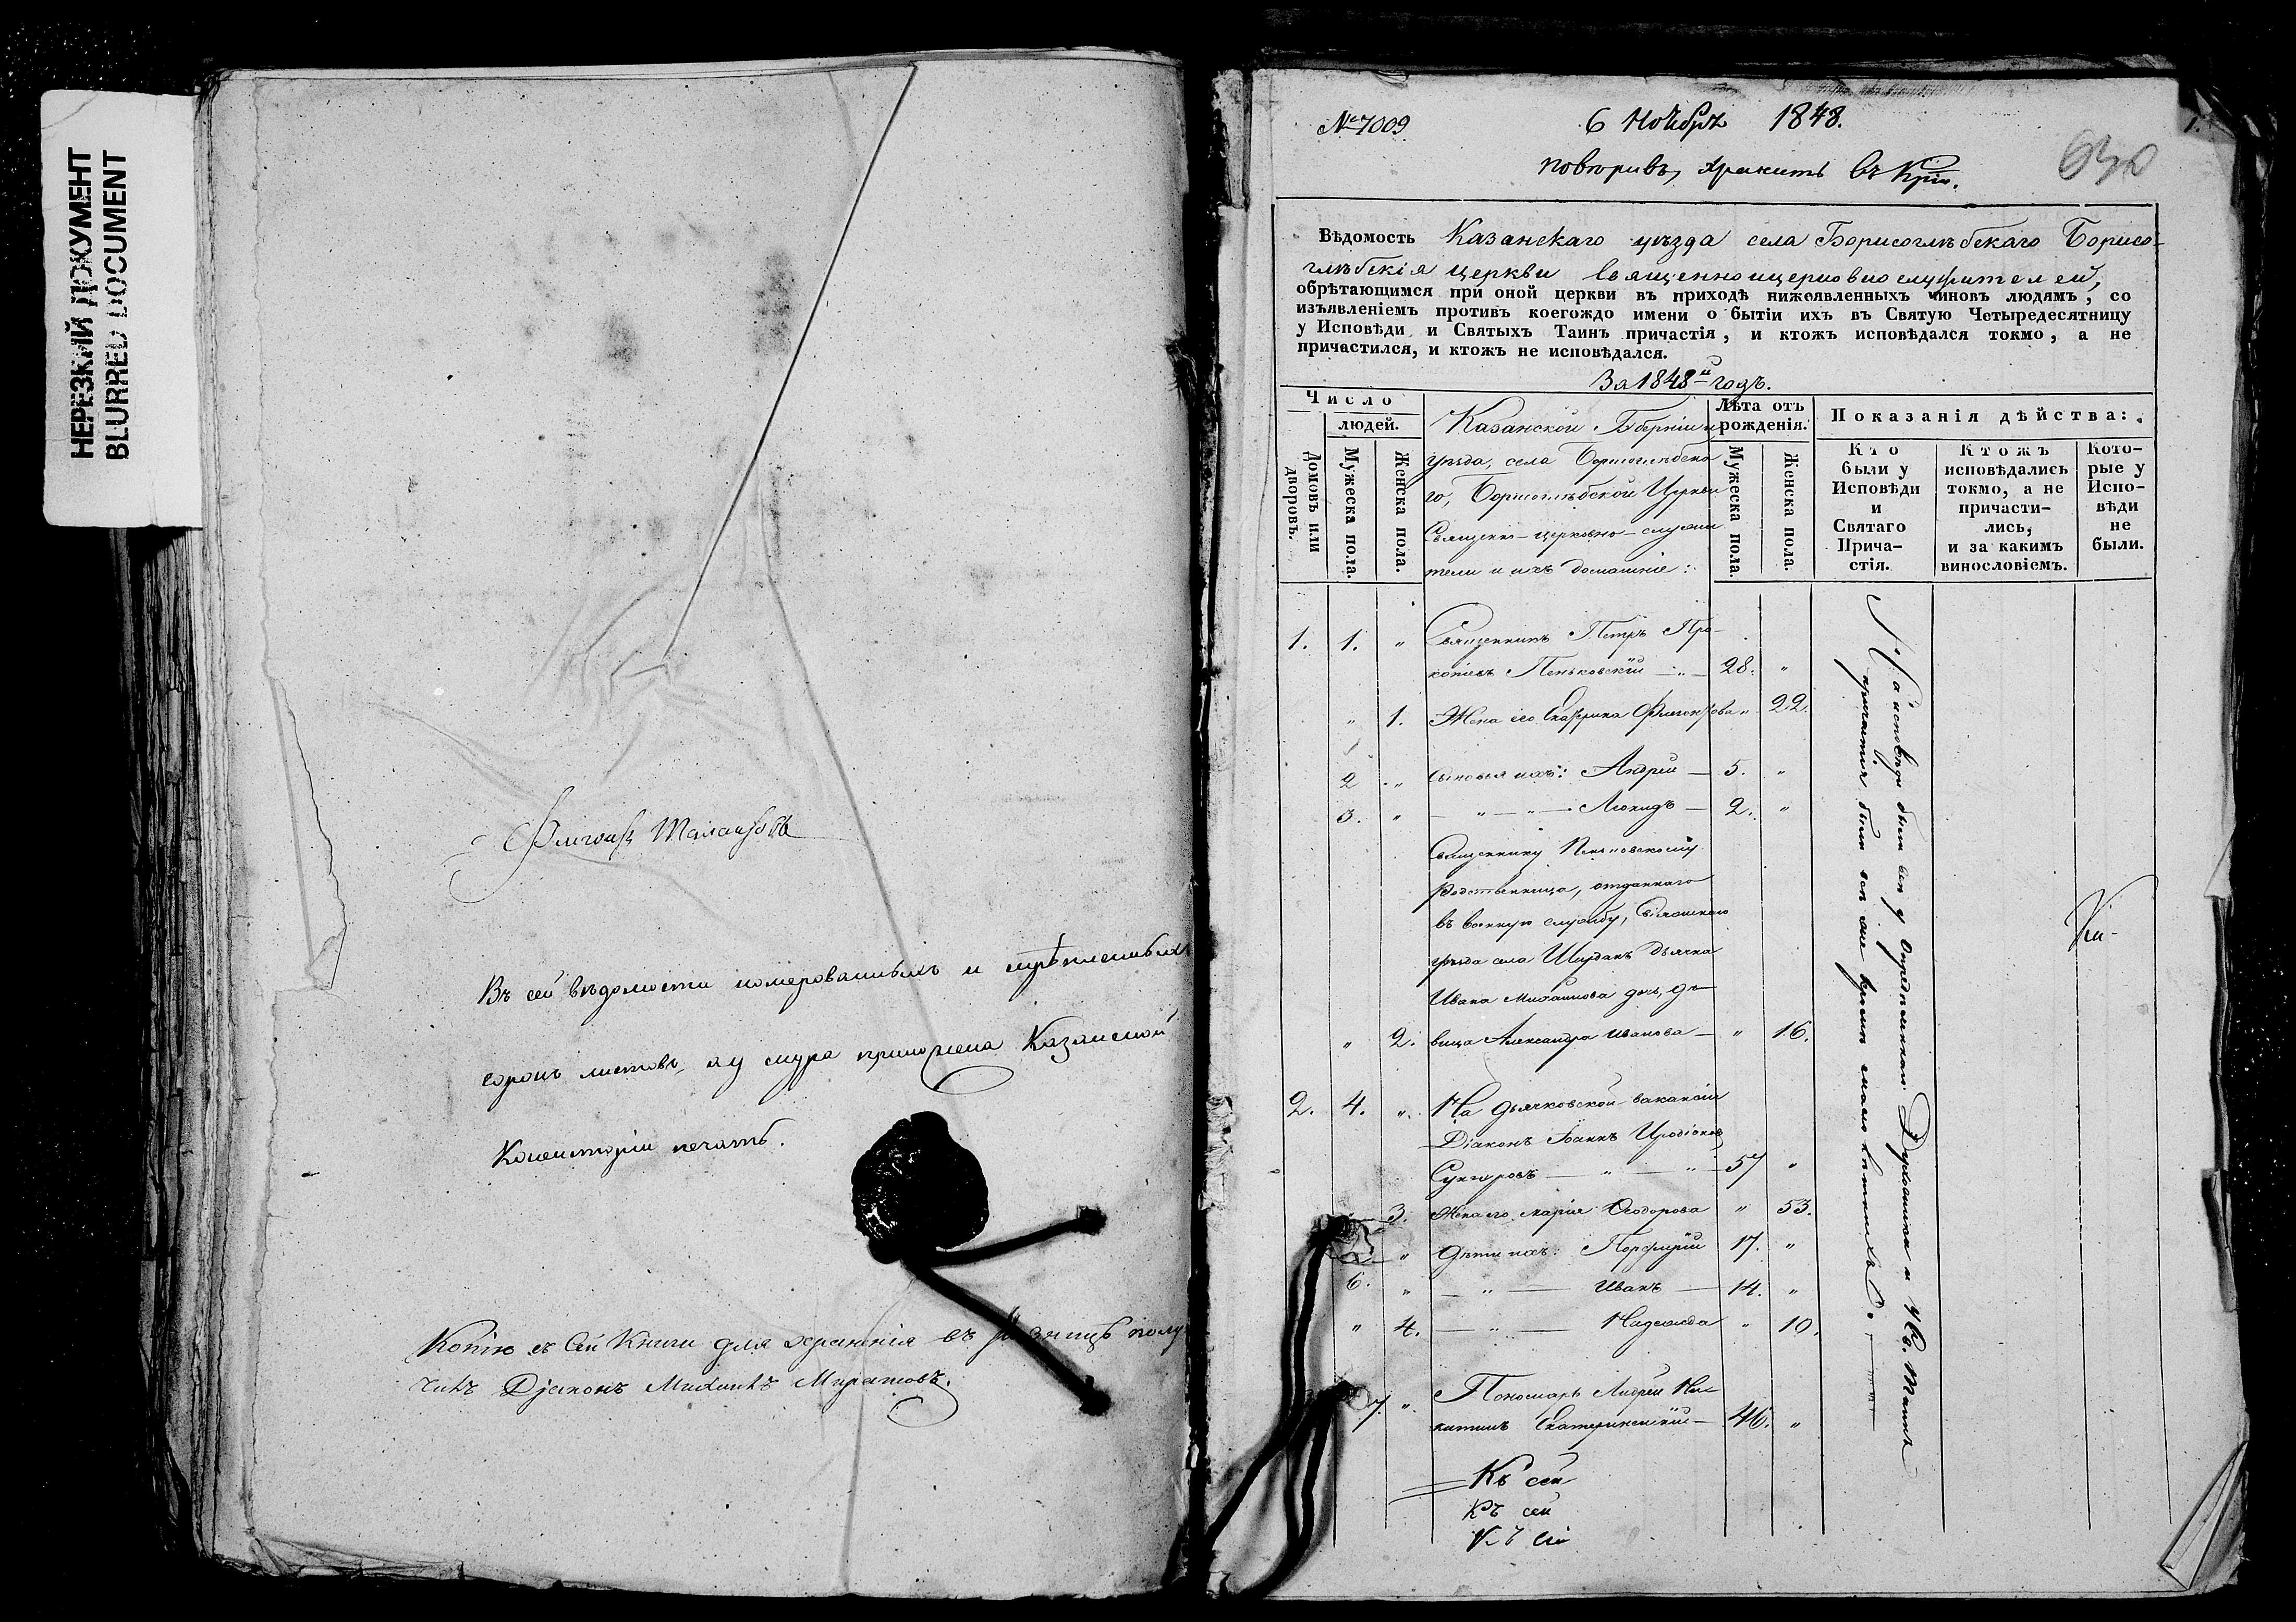 НЕРЕЗКИЙ ДОКУМЕНТ
BLURRED DOCUMENT
Въ сей вѣдомости номерованныхъ и скрѣпленныхъ
сорокъ листовъ, къ шнуру приложена Казанской
Консисторіи печать.
Копію съ сей Книги для храненія въ полу
чилъ Діаконъ Михаилъ
№ 7009
6 Ноября 1848.
повѣривъ, хранить въ
630
1.
Вѣдомость Казанскаго уѣзда села Борисоглѣбскаго Борисо-
глѣбскія церкви священноицерковнослужителей,
обрѣтающимся при оной церкви въ приходѣ нижеявленныхъ чиновъ людямъ, со
изъявленіемъ противъ коегождо имени о бытіи ихъ въ Святую Четыредесятницу
у Исповѣди и Святыхъ Таинъ причастія, и ктожъ исповѣдался токмо, а не
причастился, и ктожъ не исповѣдался.
За 1848й годъ.
Число
людей.
Домовъ или дворовъ.
Мужеска пола.
Женска пола.
Казанской Губерніи и
уѣзда, села Борисоглѣбска
го, Борисоглѣбской Церкви
Священно-церковно-служи
тели и ихъ домашніе:
Лѣта отъ
рожденія.
Мужеска пола.
Женска пола.
Показанія дѣйства:
Кто
были у
Исповѣди
и
Святаго
Прича-
стія.
Ктожъ
исповѣдались
токмо, а не
причасти-
лись,
и за какимъ
винословіемъ.
Кото-
рые у
Испо-
вѣди
не
были.
1. 1. " Священникъ Петръ Про-
копіевъ Пеньковскій — " — 28. "
" 1. Жена его Екатерина 22.
2 " Сыновья ихъ: Андрей — 5. "
3. " — " — " — Леонидъ — 2. "
Священнику Пеньковскому
родственница, отданнаго
въ военную службу, Свіяжскаго
уѣзда села Ширданъ дьячка
Ивана Михайлова дочь, дѣ-
" 2. вица Александра Иванова — " 16.
2. 4. " На дьячковской вакансіи
Діаконъ Іоаннъ Иродіоновъ
Сунгуровъ — " — " — 57 "
3. Жена его Марія Ѳеодорова " 53.
" Дѣти ихъ: Порфирій 17. "
6. " — " — Иванъ — 14. "
" 4. — " — Надежда " 10.
7. " Пономарь Андрей Ни-
китинъ Екатерининскій — 46. "
Къ сей
Къ сей
Къ сей
У исповѣди были все у Духовника и у Св. Таинъ
причастія были все кромѣ малолѣтнихъ.